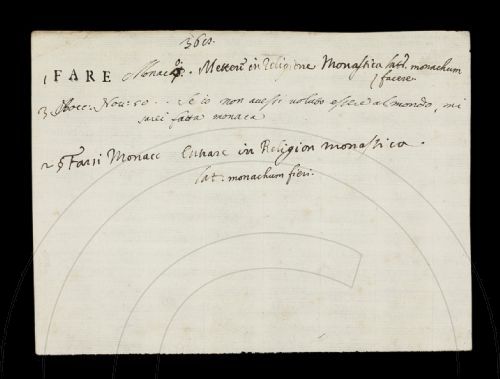 36co.
1 FARE Monaco. Metter in Religione Monastica lat. monachum
facere.
3 Bocc. Nov: 50.. Se io non avessi voluto essere al mondo, mi
sarei fatta monaca
2 Farsi Monac Entrare in Religion monastica.
lat. monachum fieri.